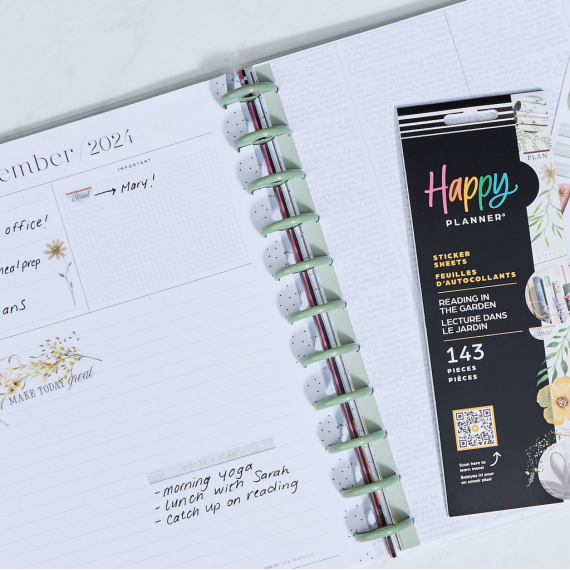 ember / 2024
IMPORTANT
Mary!
office!
meal prep
ans
MAKE TODAY great
- morning yoga
- lunch with Sarah
- catch up on reading
PLAN
Happy
PLANNER®
STICKER
SHEETS
FEUILLES
D'AUTOCOLLANTS
READING IN
THE GARDEN
LECTURE DANS
LE JARDIN
143
PIECES
PIÈCES
Scan here to
learn more!